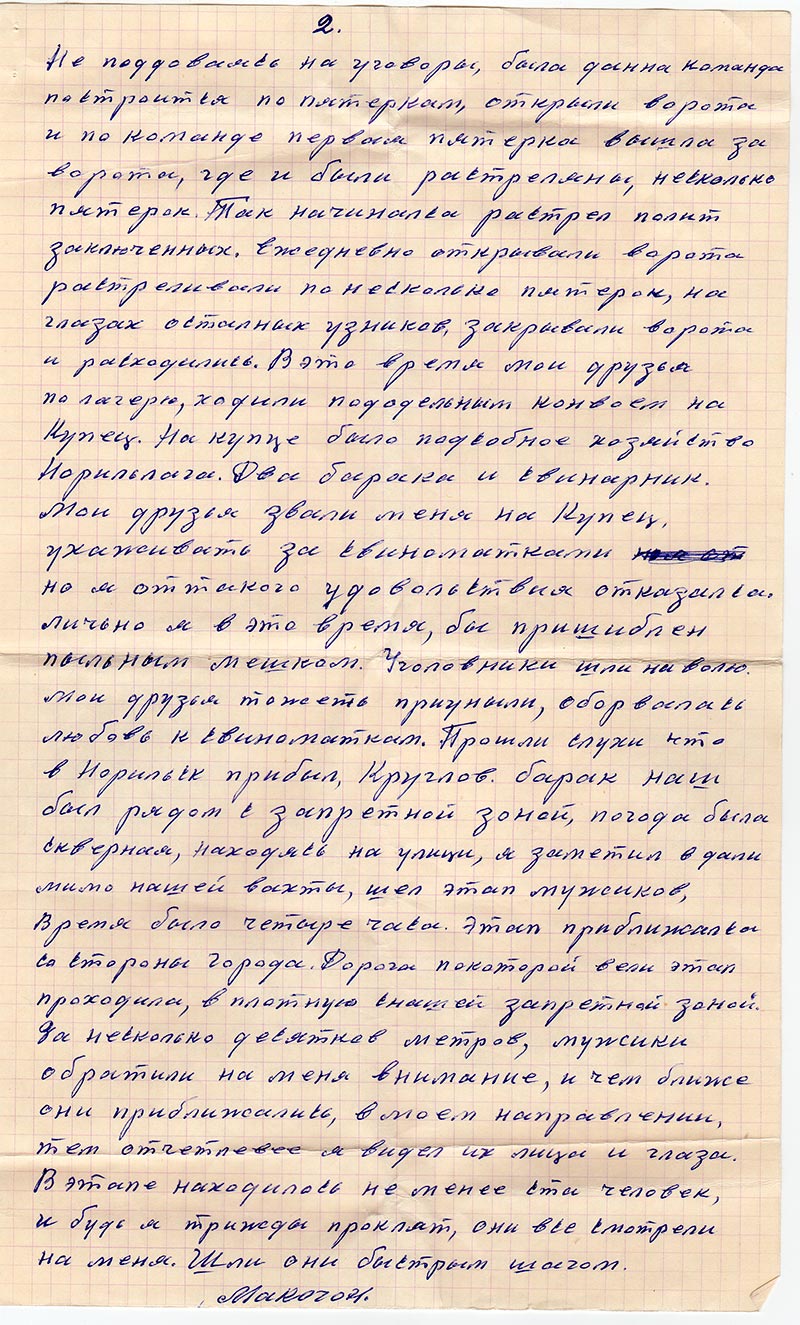 2.
Не поддоваясь на уговоры, была данна команда
построится по пятеркам, открыли ворота
и по команде первая пятерка вышла за
ворота, где и были растреляны, несколько
пятерок. Так начинался растрел полит
заключенных. Ежедневно открывали ворота
растреливали по несколько пятерок, на
глазах осталных узников, закрывали ворота
и расходились. В это время мои друзья
по лагерю, ходили пододельным конвоем на
Купец. На купце было подсобное хозяйство
Норильлага. Два барака и свинарник.
Мои друзья звали меня на Купец,
ухаживать за свиноматками
но я оттакого удовольствия отказался.
личьно я в это время, бы пришиблен
пыльным мешком. Уголовники шли на волю.
Мои друзья тожеть приуныли, оборвалась
любовь к свиноматкам. Прошли слухи что
в Норильск прибыл, Круглов. барак наш
был рядом с запретной зоной, погода была
скверная, находясь на улици, я заметил в дали
мимо нашей вахты, шел этап мужиков,
Время было четыре часа. Этап приближался
со стороны города. Дорога покоторой вели этап
проходила, в плотную снашей запретной зоной.
За несколько десятков метров, мужики
обратили на меня внимание, и чем ближе
они приближались, в моем направлении,
тем отчетлевее я видел их лица и глаза.
В этапе находилось не менее ста человек,
и будь я трижды проклят, они все смотрели
на меня. Шли они быстрым шагом.
Макогон.